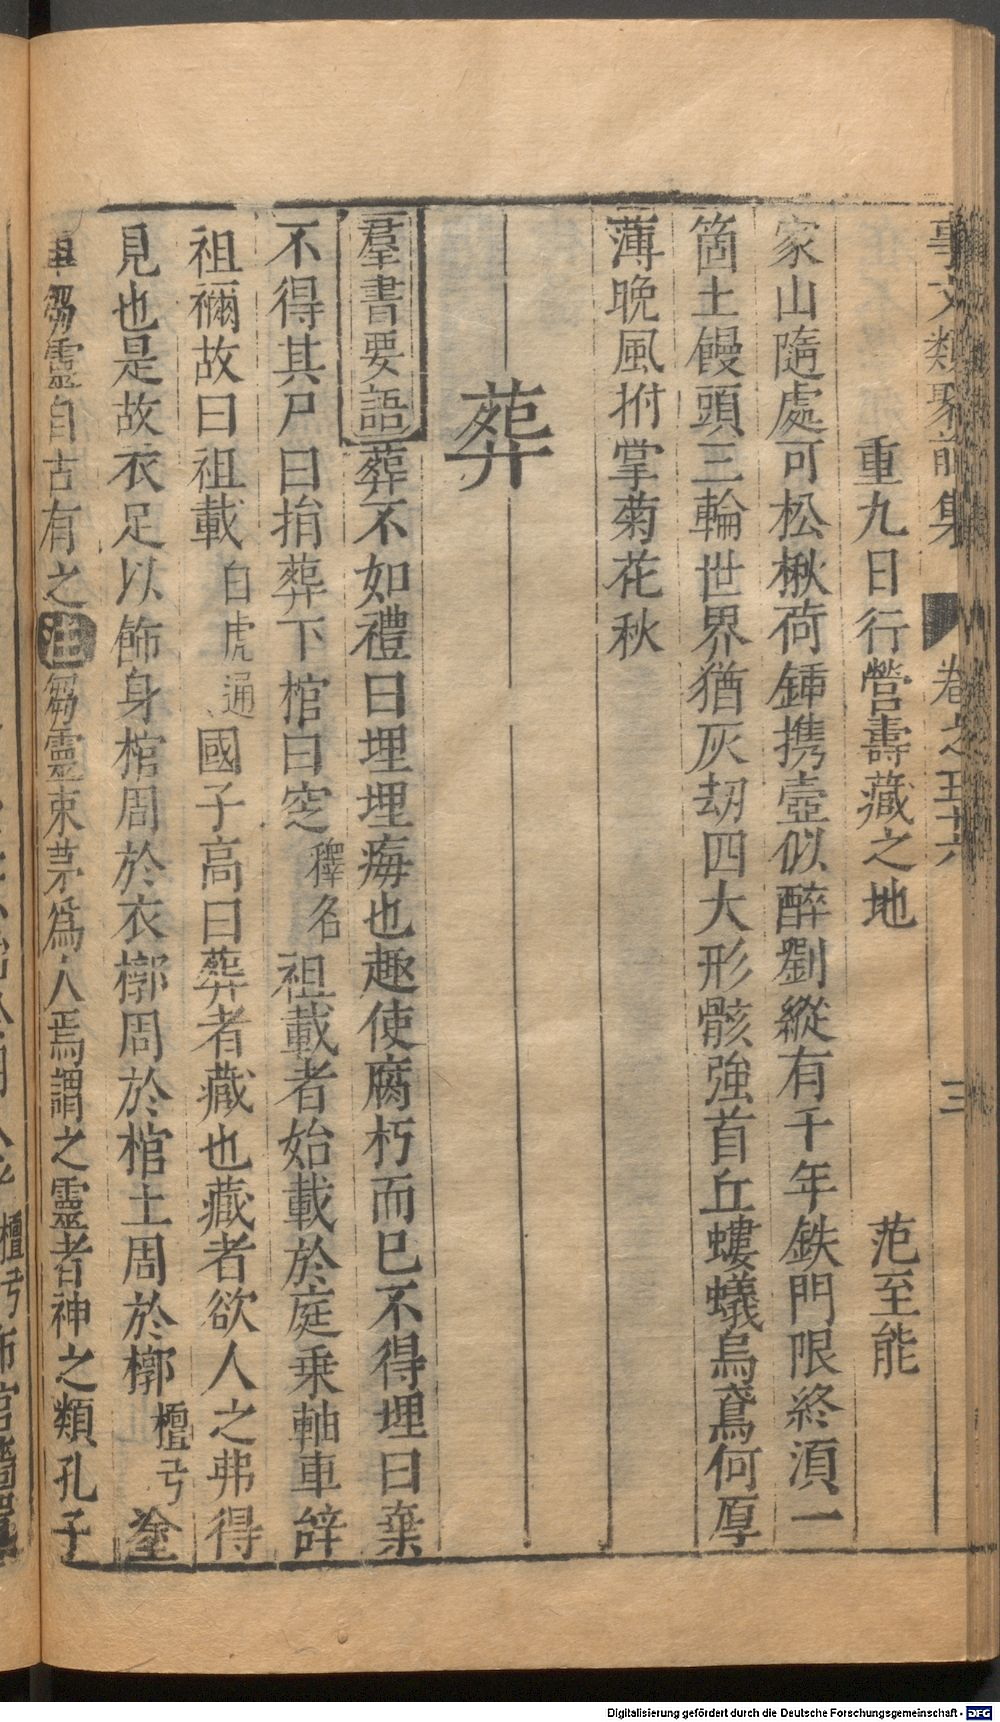 事文類聚前集 卷之五十六 三
重九日行營壽藏之地 范至能
家山隨處可松楸荷鍤携壺似醉劉縱有千年鉄門限終湏一
箇土饅頭三輪世界猶灰刼四大形骸強首丘螻蟻烏鳶何厚
薄晚風拊掌菊花秋
葬
羣書要語葬不如禮曰埋埋痗也趣使腐朽而已不得埋曰棄
不得其尸曰捐葬下棺曰窆釋名祖載者始載於庭乗軸車辝
祖禰故曰祖載白虎通國子高曰葬者藏也藏者欲人之弗得
見也是故衣足以飾身棺周於衣槨周於棺土周於槨檀弓塗
車芻靈自古有之注芻靈束茅為人焉謂之靈者神之類孔子
檀弓
Digitalisierung gefördert durch die Deutsche Forschungsgemeinschaft - DFG